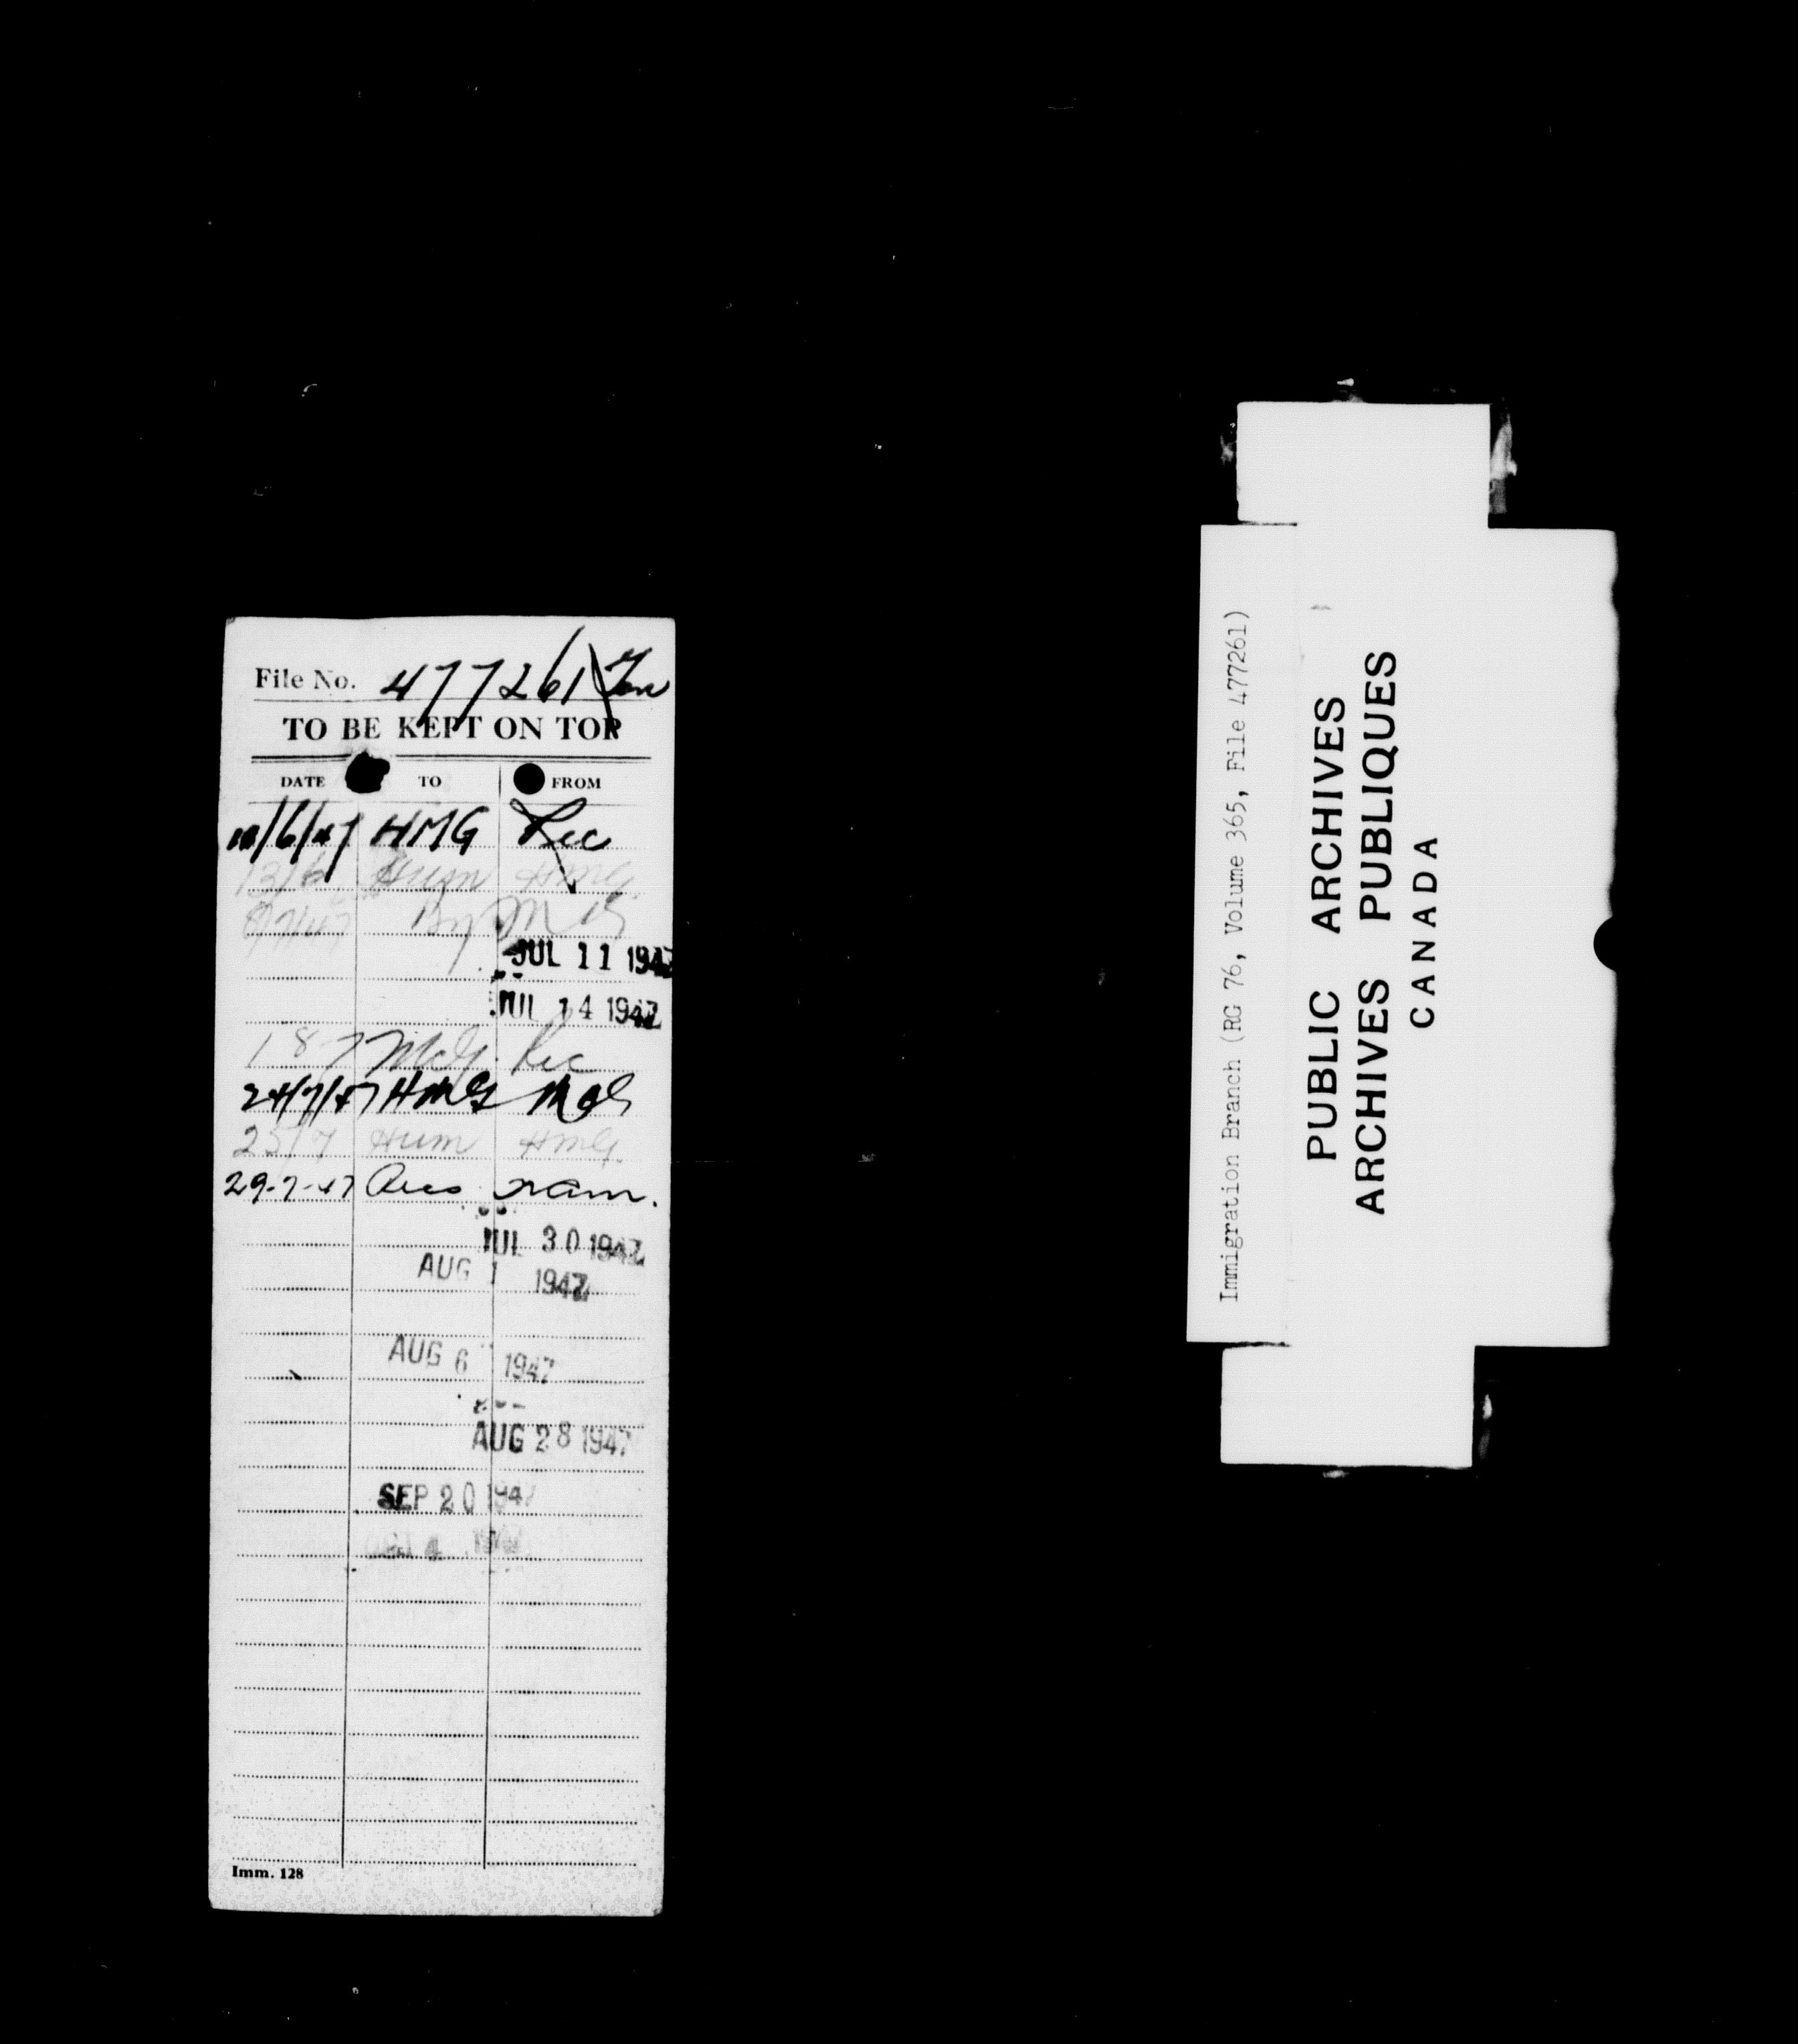 File No. 477261
TO BE KEPT ON TOP
DATE TO FROM
10/6/47 HMG Rec
13/6 Hum HMG
JUL 11 1947
JUL 14 1947
Rec
24/7/47 HMG McG
25/7 Hum HMG.
29-7-47
JUL 30 1947
AUG 1 1947
AUG 6 1947
AUG 28 1947
SEP 20 1947
Imm. 128
Immigration Branch (RG 76, Volume 365, File 477261)
PUBLIC ARCHIVES
ARCHIVES PUBLIQUES
CANADA